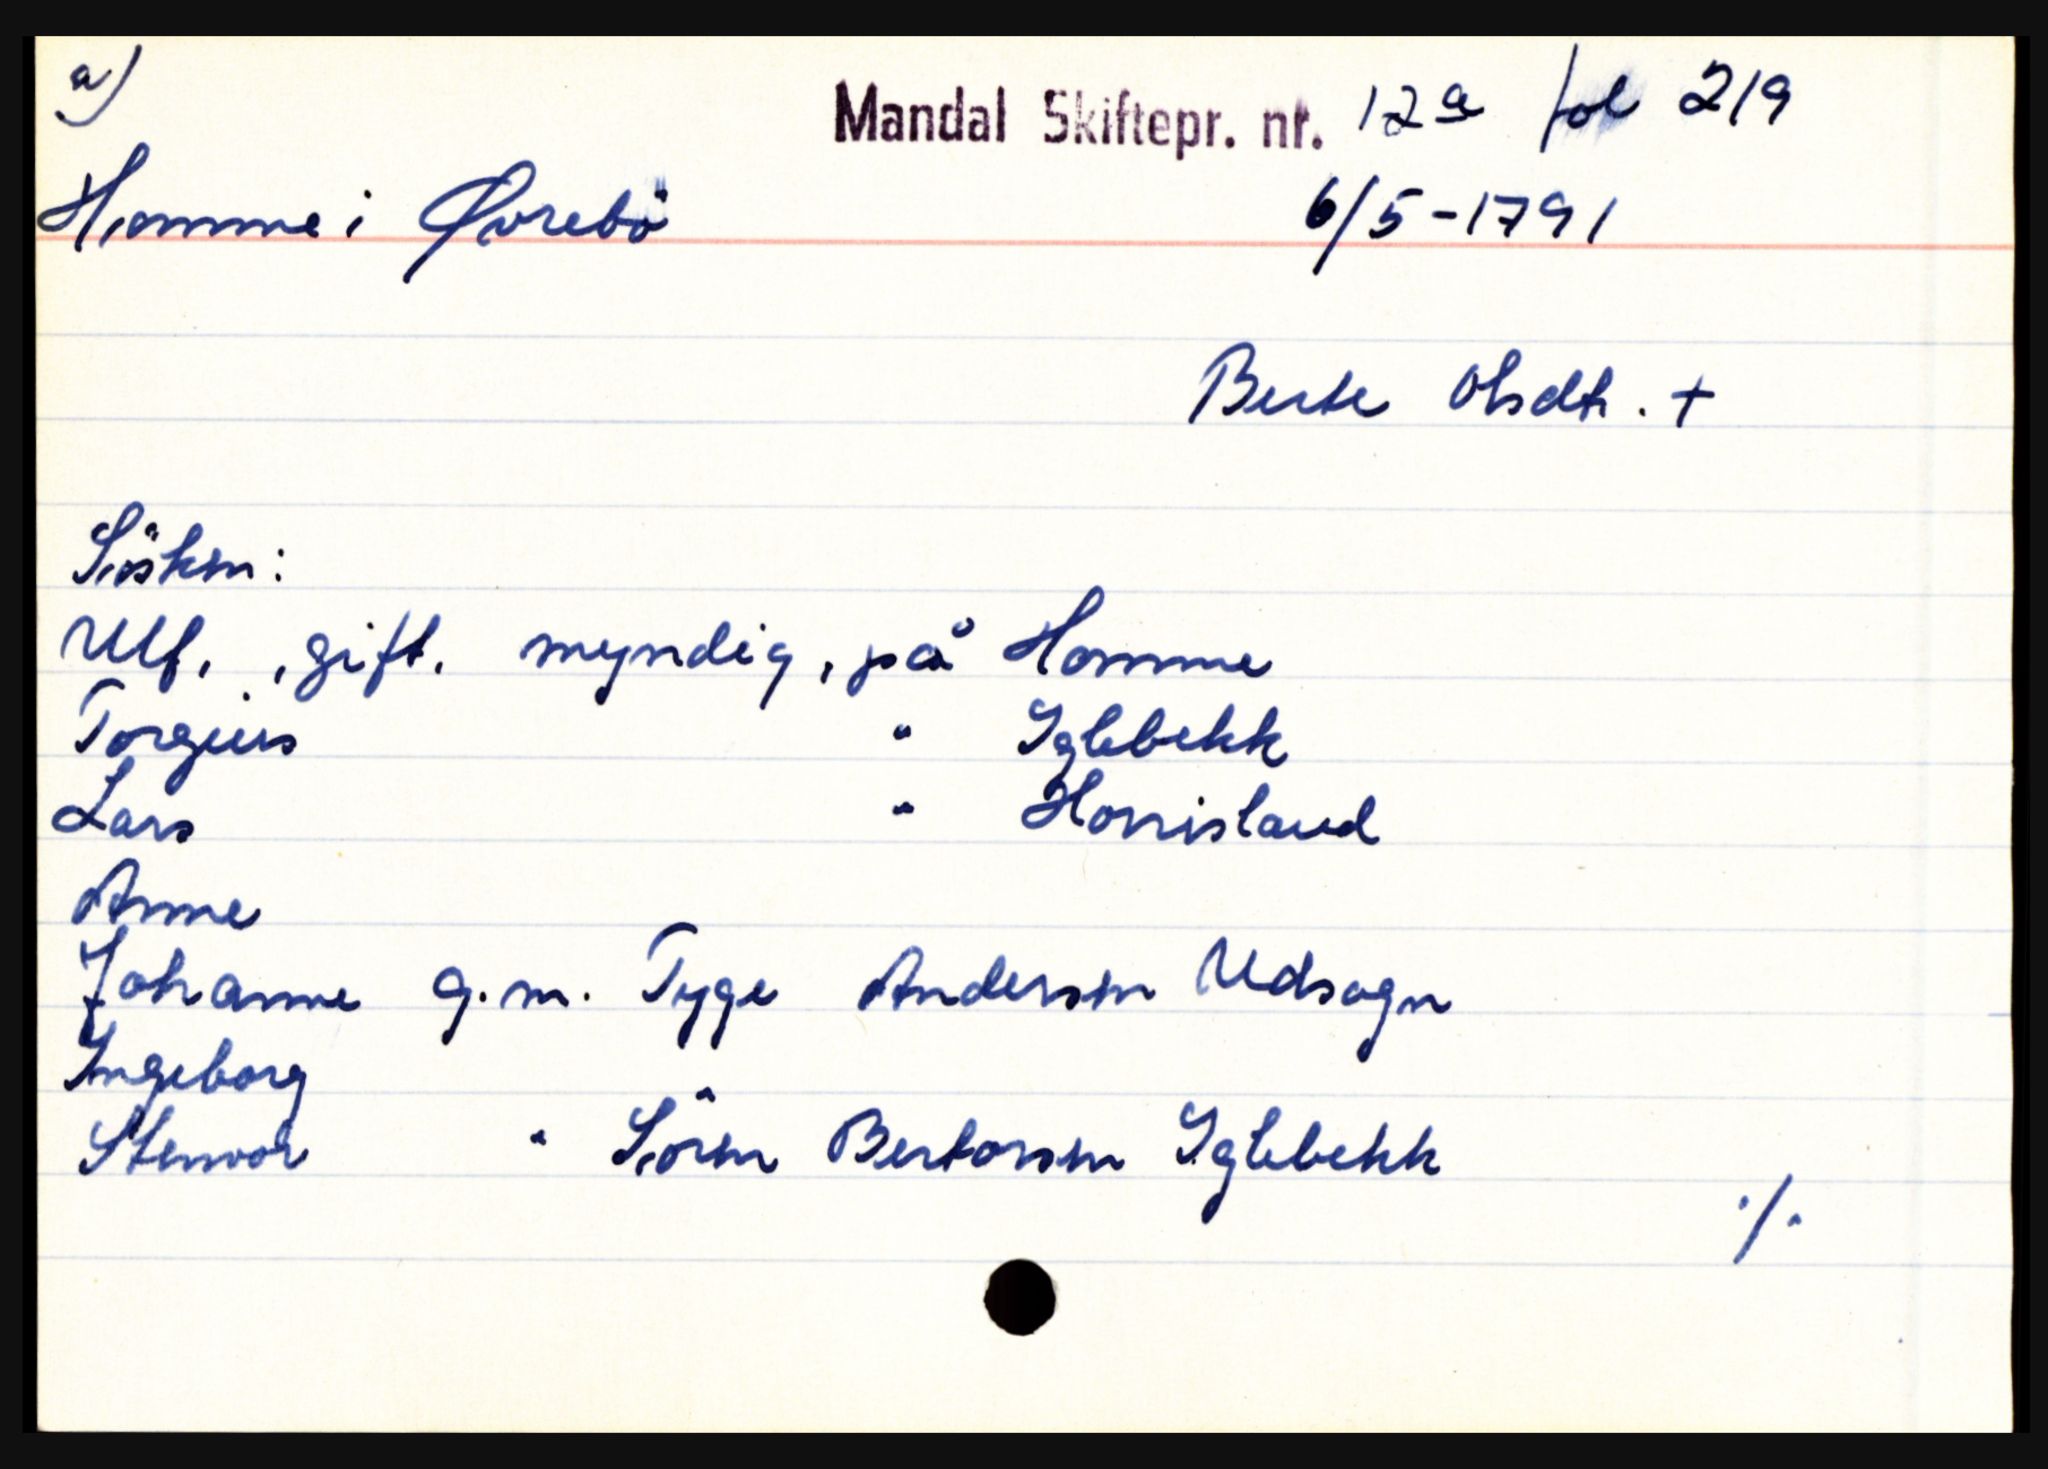 a)
Mandal Skiftepr. nr. 12a fol 219
Homme i Øvrebö
6/5-1791
Berte Olsdtr. +
Sösken:
Ulf, gift. myndig, på Homme
Torgius " Iglebekk
Lars " Honnisland
Anne
Johanne g.m. Tyge Andersen Udsogn
Ingeborg
Stenvor " Sören Bertorsen Iglebekk
./.